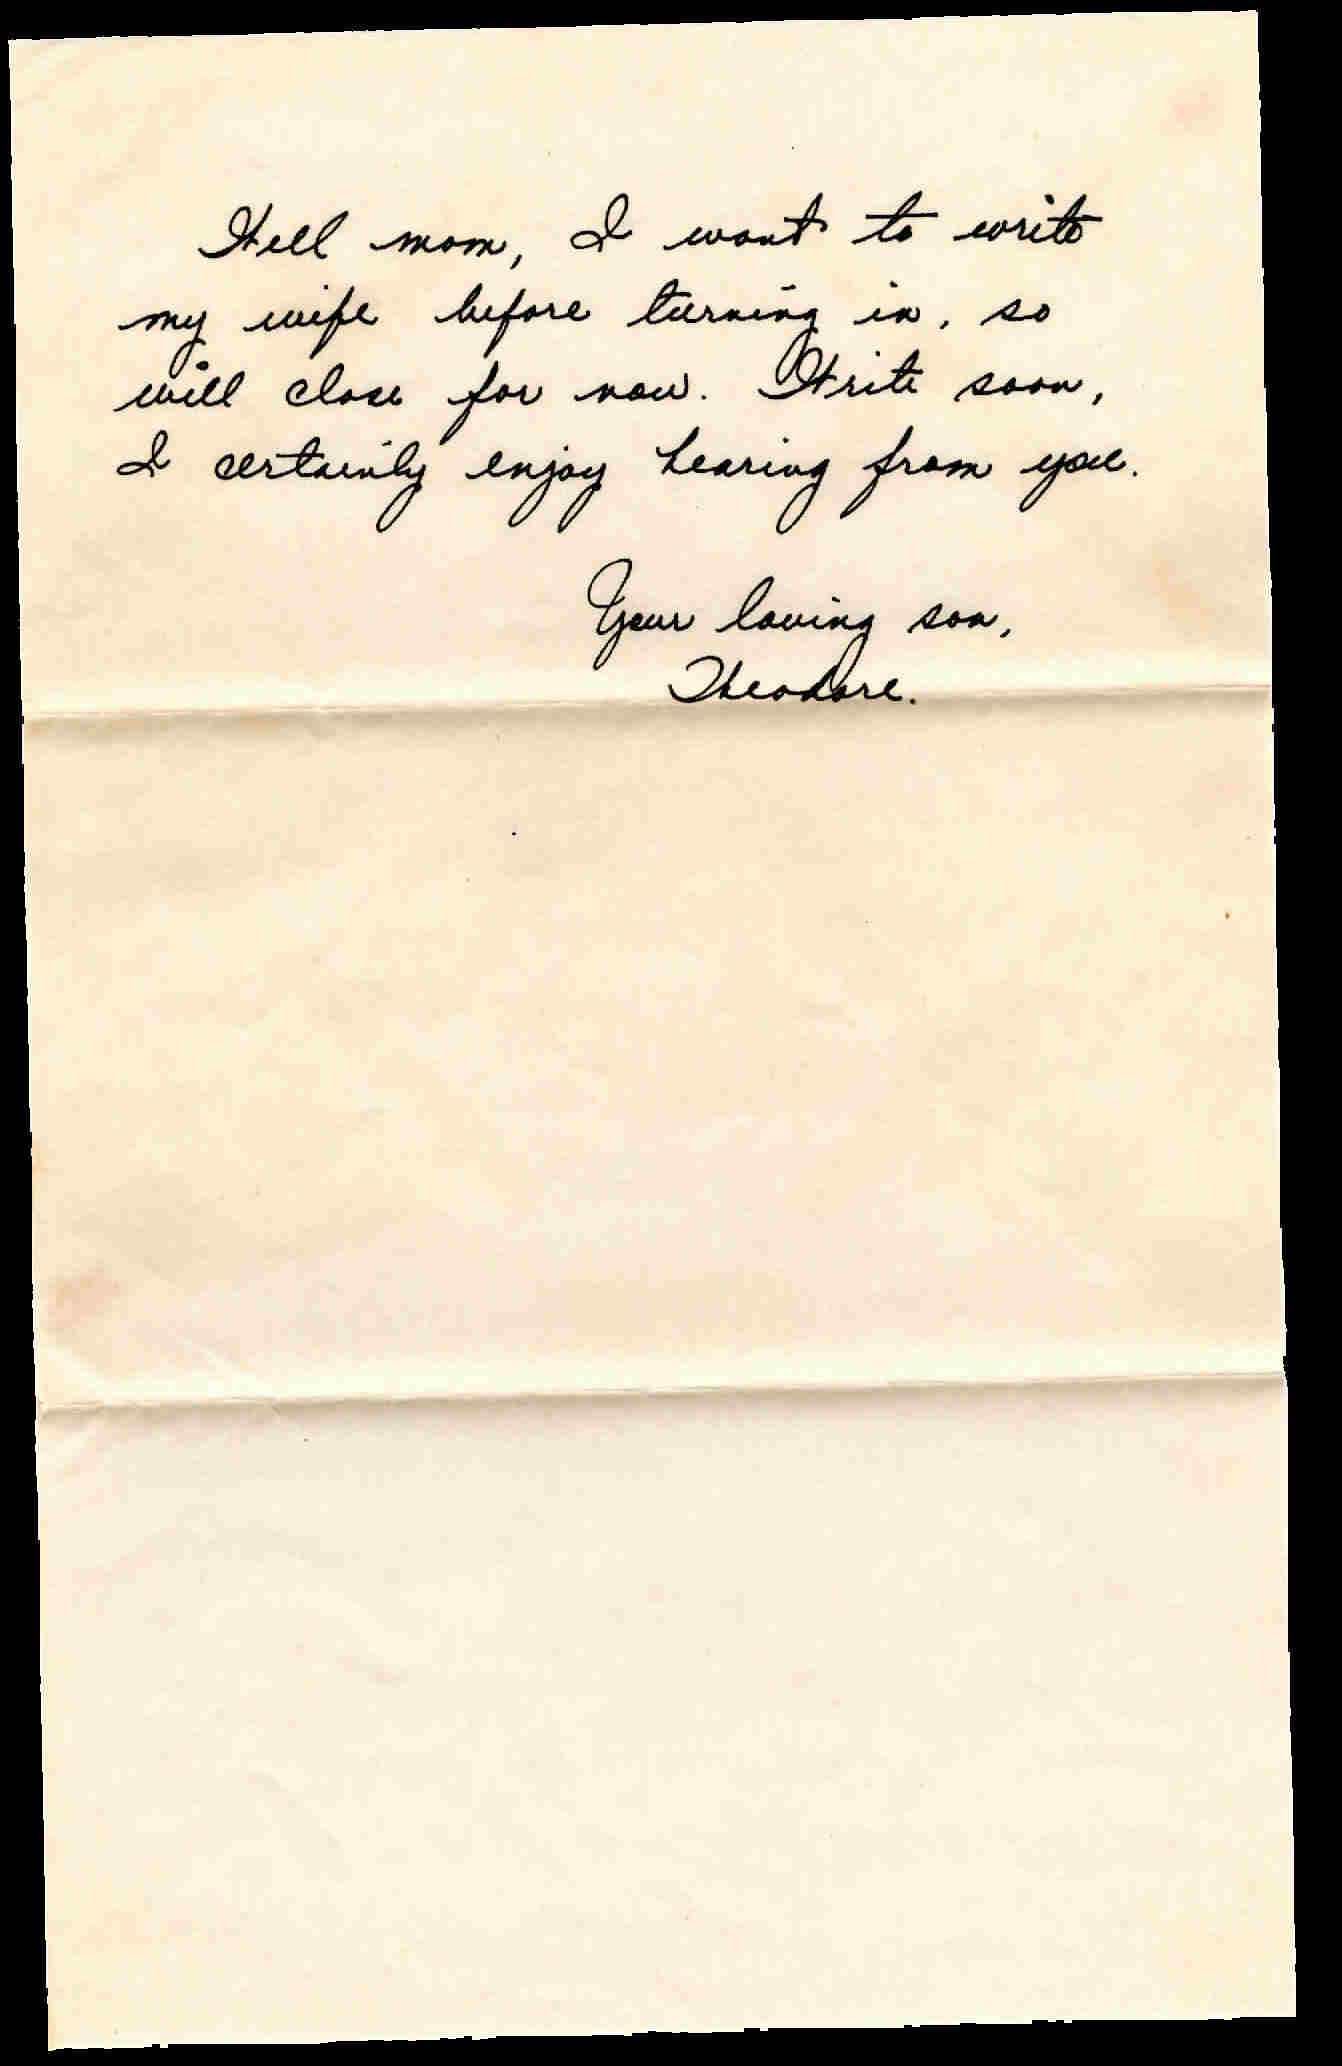 Well mom, I want to write
my wife before turning in, so
will close for now. Write soon,
I certainly enjoy hearing from you.
Your loving son,
Theodore.